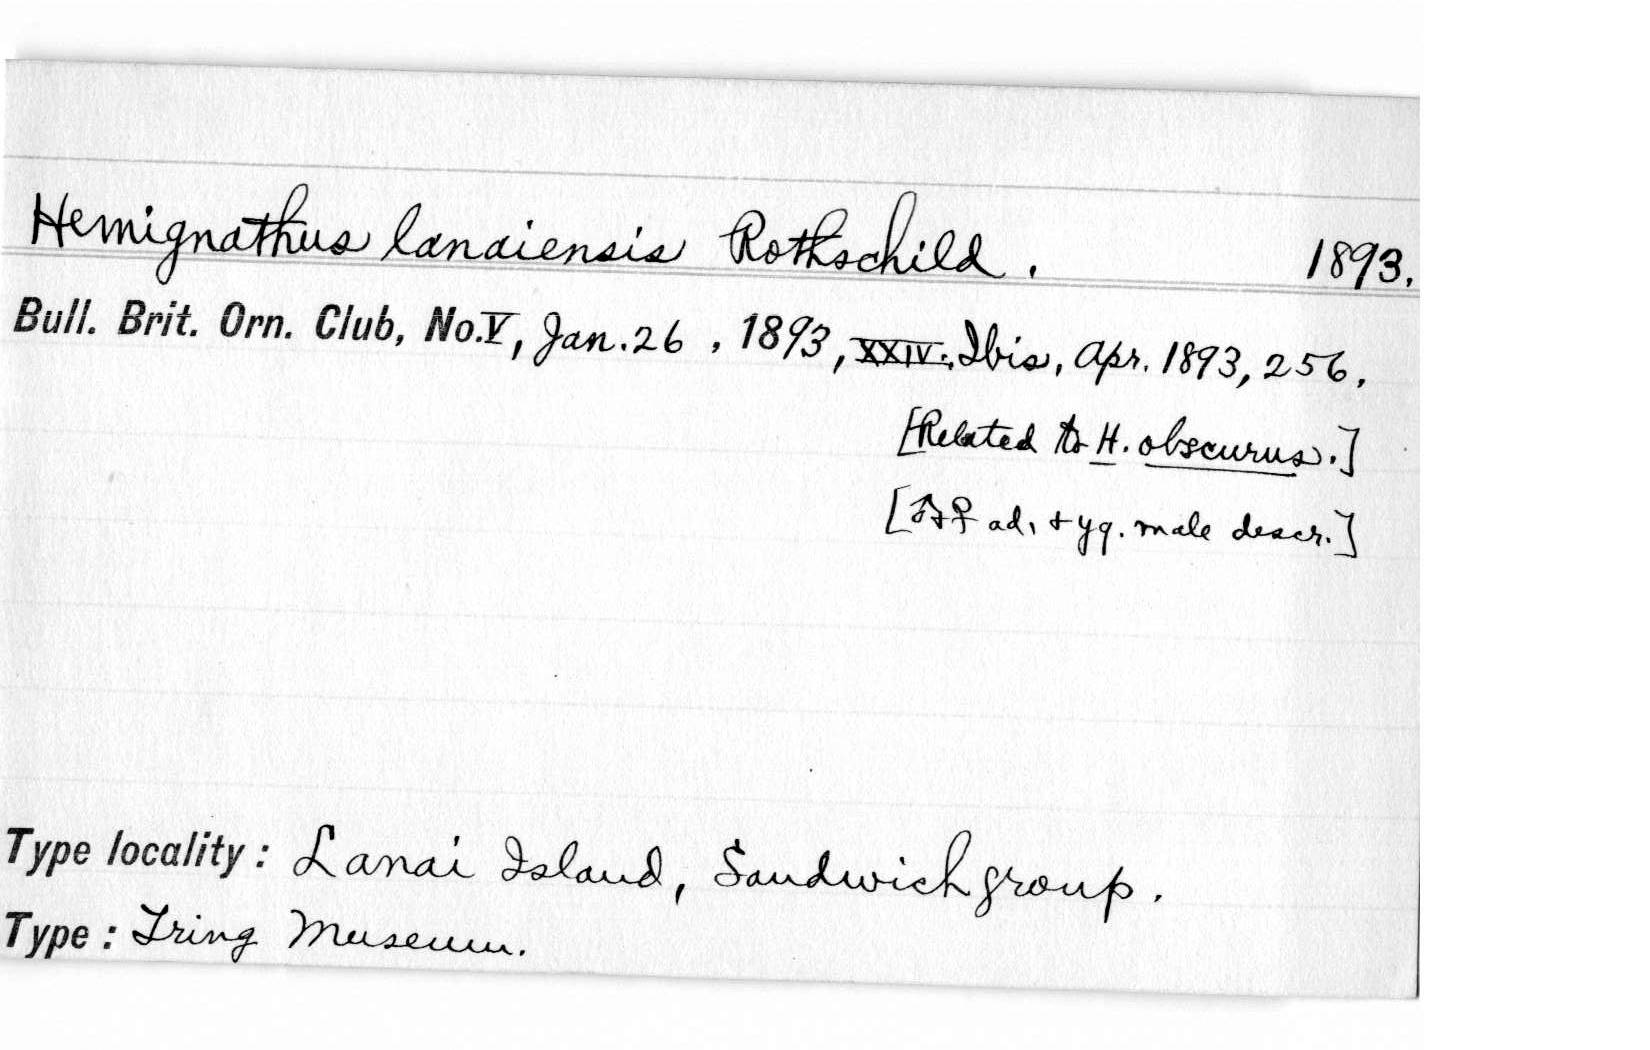 Hemignathus lanaiensis Rothschild. 1893.
Bull. Brit. Orn. Club, No. V, Jan. 26, 1893, XXIV: Ibis, Apr. 1893, 256.
[Related to H. obscurus.]
[♂ + ♀ ad. + yg. male descr.]
Type locality: Lanai Island, Sandwich group.
Type: Tring Museum.